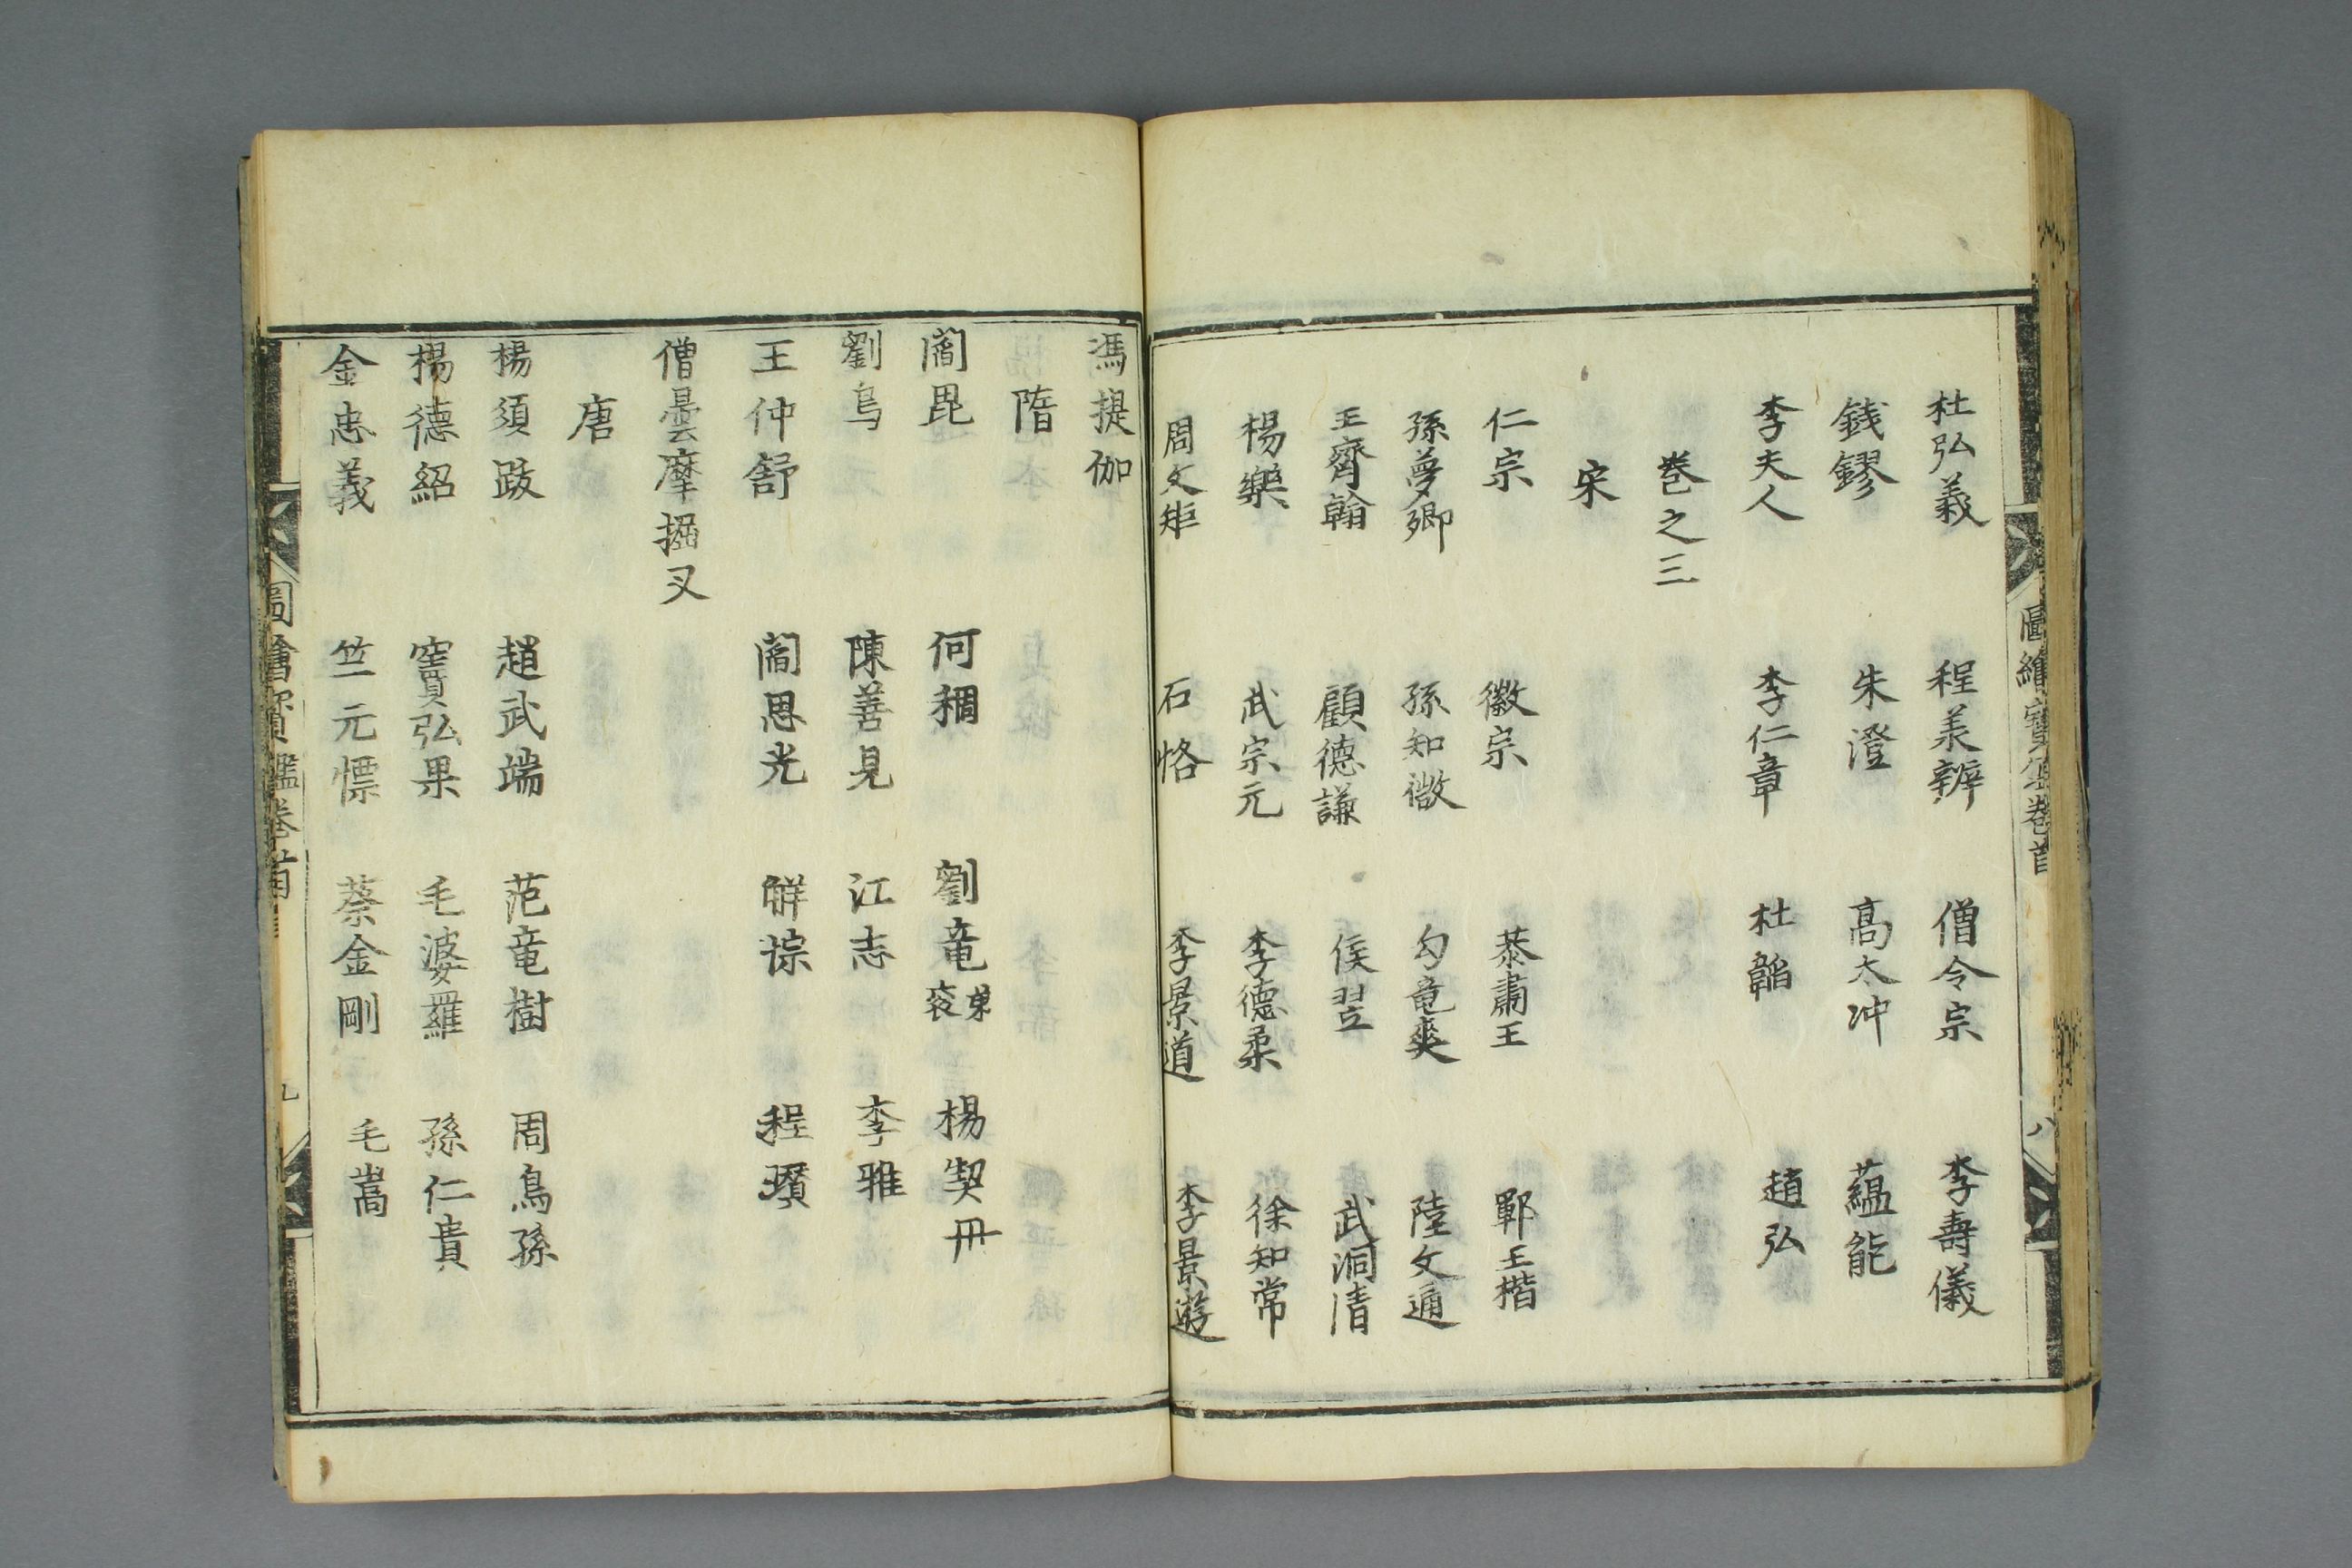 杜弘義 程羙辨 僧令宗 李壽儀
銭鏐 朱澄 髙太冲 蘊能
李夫人 李仁章 杜韜 趙弘
卷之三
宋
仁宗 徽宗 恭肅王 鄆王楷
孫夢卿 孫知微 勾竜爽 陸文通
王齊翰 顧德謙 侯翌 武洞清
楊樂 武宗元 李德柔 徐知常
周文矩 石恪 李景道 李景遊
圖繪寶鑑卷首 八
馮提伽
隋
閻毘 何稠 劉竜弟衮 楊契丹
劉烏 陳善見 江志 李雅
王仲舒 閻思光 觧悰 程瓚
僧曇摩掘叉
唐
楊須跋 趙武端 范竜樹 周烏孫
楊德紹 竇弘果 毛婆羅 孫仁貴
金忠義 竺元慓 蔡金剛 毛嵩
圖繪寶鑑卷首 九